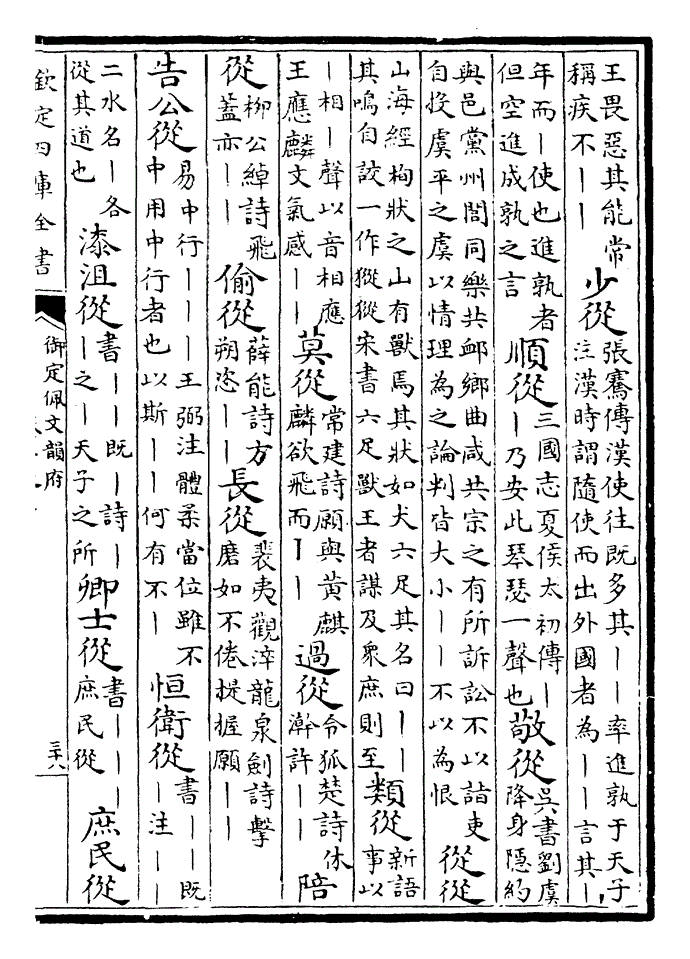 王畏惡其能常
稱疾不｜｜
少從
張騫傳漢使往既多其｜｜率進孰于天子
注漢時謂隨使而出外國者為｜｜言其｜
年而｜使也進孰者
但空進成孰之言
順從
三國志夏侯太初傳｜
｜乃安此琴瑟一聲也
敬從
吳書劉虞
降身隱約
與邑黨州閭同樂共卹鄉曲咸共宗之有所訴訟不以詣吏
自投虞平之虞以情理為之論判皆大小｜｜不以為恨
從從
山海經枸狀之山有獸焉其狀如犬六足其名曰｜｜
其鳴自詨一作猣猣宋書六足獸王者謀及衆庶則至
類從
新語
事以
｜相｜聲以音相應
王應麟文氣感｜｜
莫從
常建詩願與黃麒
麟欲飛而｜｜
過從
令狐楚詩休
澣許｜｜
陪
從
柳公綽詩飛
蓋亦｜｜
偷從
薛能詩方
朔恣｜｜
長從
裴夷觀淬龍泉劍詩擊
磨如不倦提握願｜｜
告公從
易中行｜｜｜王弼注體柔當位雖不
中用中行者也以斯｜｜何有不｜
恒衛從
書｜｜既
｜注｜｜
二水名｜各
從其道也
漆沮從
書｜｜既｜詩｜
｜之｜天子之所
卿士從
書｜｜｜
庶民從
庶民從
欽定四庫全書
御定佩文韻府
三十八